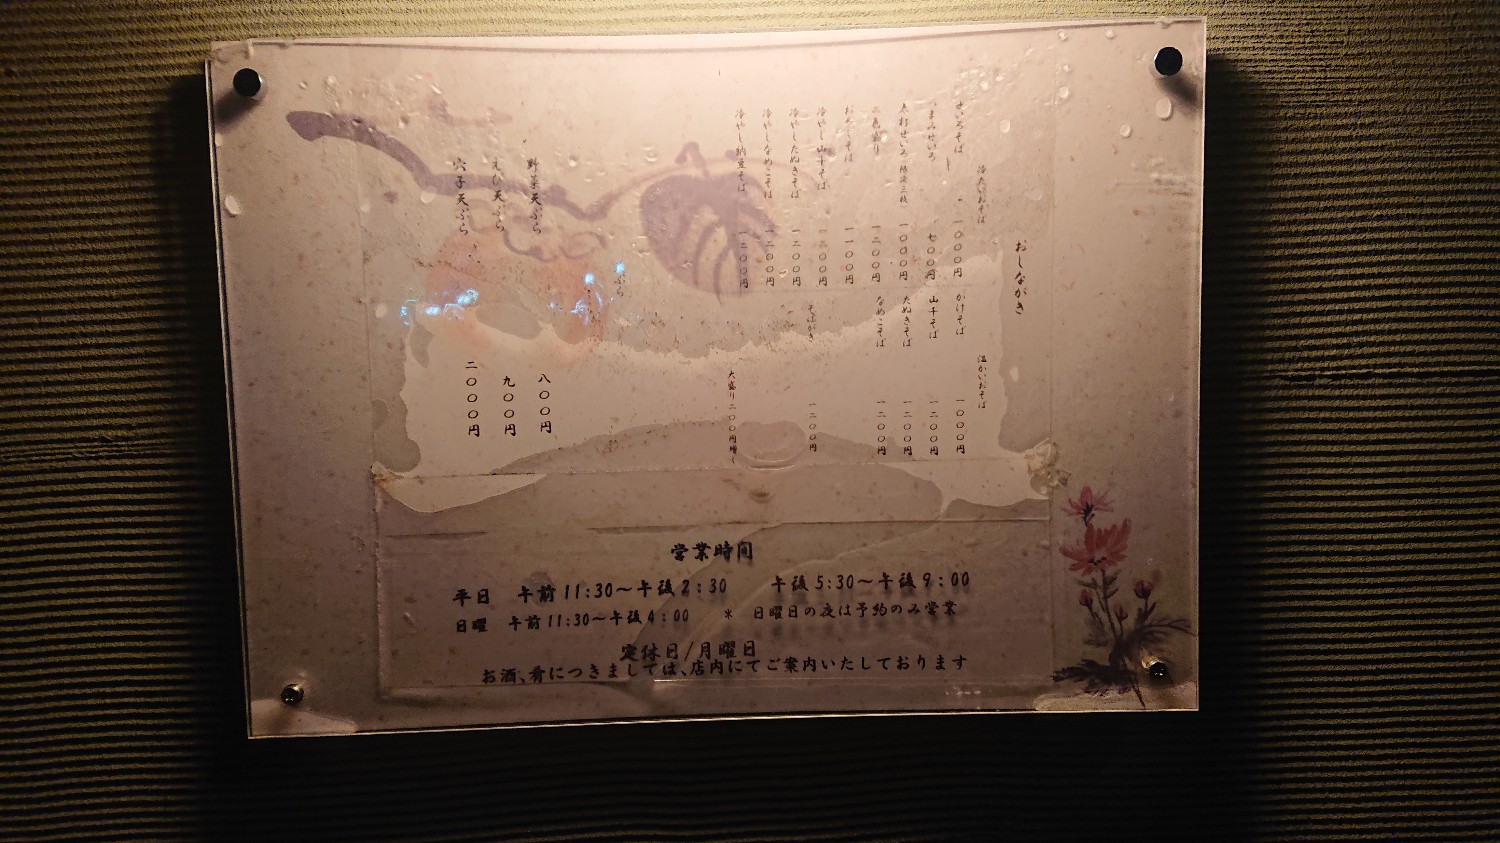 おしながき
冷たいおそば
せいろそば 一〇〇〇円
いまみせいろ 七〇〇円
太打せいろ 限定三枚 一〇〇〇円
二色盛り 一二〇〇円
おろしそば 一一〇〇円
冷やし山千そば 一二〇〇円
冷やしたぬきそば 一二〇〇円
冷やしなめこそば 一二〇〇円
冷やし納豆そば 一二〇〇円
温かいおそば
かけそば 一〇〇〇円
山千そば 一二〇〇円
たぬきそば 一二〇〇円
なめこそば 一二〇〇円
そばがき 一二〇〇円
大盛り二〇〇円増し
ぷら
野菜天ぷら 八〇〇円
えび天ぷら 九〇〇円
穴子天ぷら 二〇〇〇円
営業時間
平日 午前11:30〜午後2:30 午後5:30〜午後9:00
日曜 午前11:30〜午後4:00 * 日曜日の夜は予約のみ営業
定休日/月曜日
お酒、肴につきましては、店内にてご案内いたしております